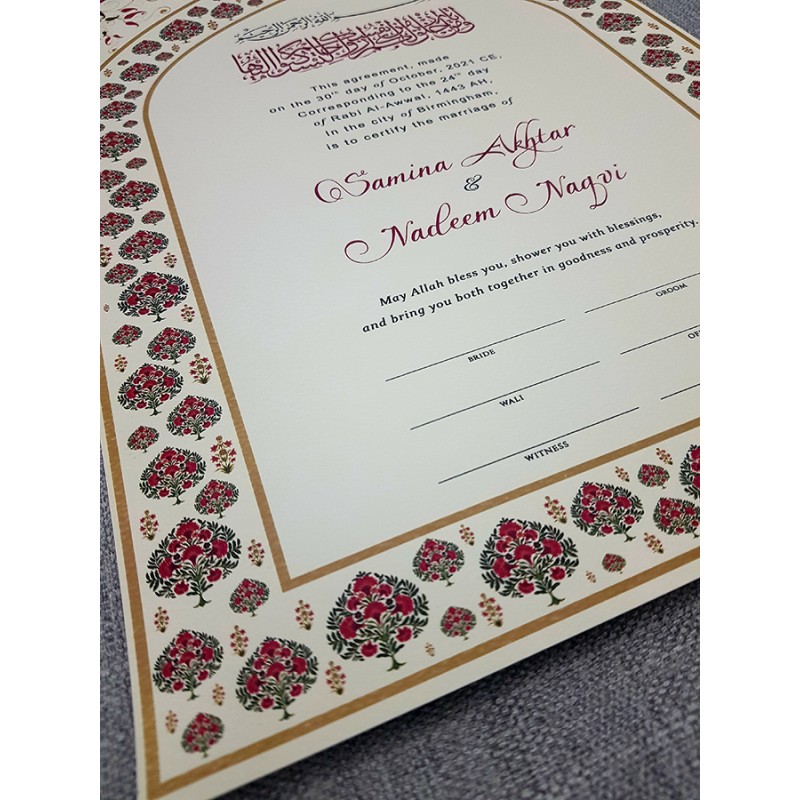 بسم الله الرحمن الرحيم
This agreement, made
on the 30th day of October, 2021 CE,
Corresponding to the 24th day
of Rabi Al-Awwal, 1443 AH,
in the city of Birmingham,
is to certify the marriage of
Samina Akhtar
&
Nadeem Naqvi
May Allah bless you, shower you with blessings,
and bring you both together in goodness and prosperity.
BRIDE GROOM
WALI
WITNESS